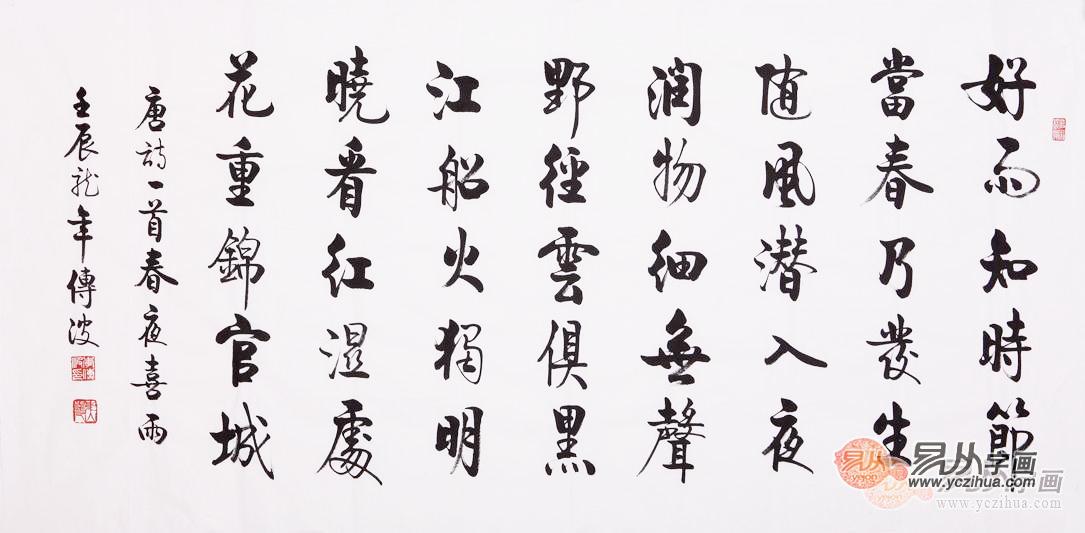 好雨知時節
當春乃發生
随風潜入夜
潤物細無聲
野徑雲俱黑
江船火獨明
曉看紅濕處
花重錦官城
唐詩一首春夜喜雨
壬辰龙年傳波
易从字画
www.yczihua.com
www.yczihua.com